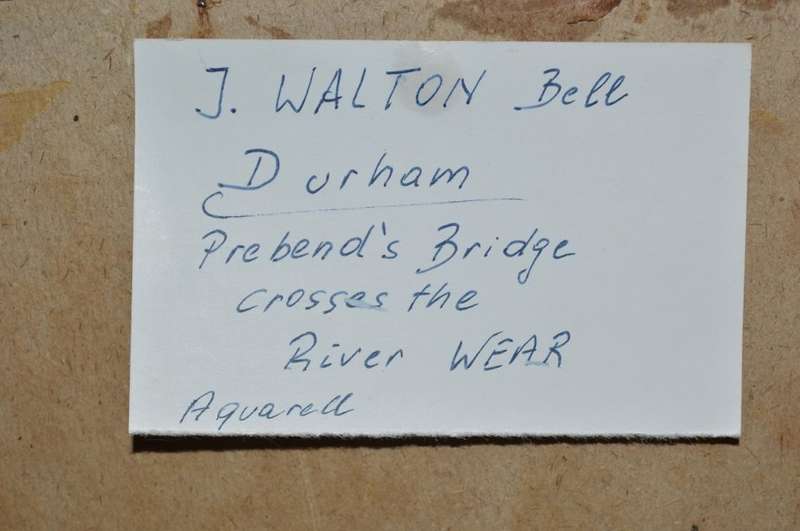 J. WALTON Bell
Durham
Prebend's Bridge
crosses the
River WEAR
Aquarell